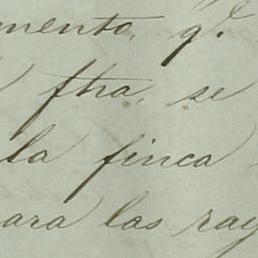 mento, q.e
fha, se
la finca
ara las ray